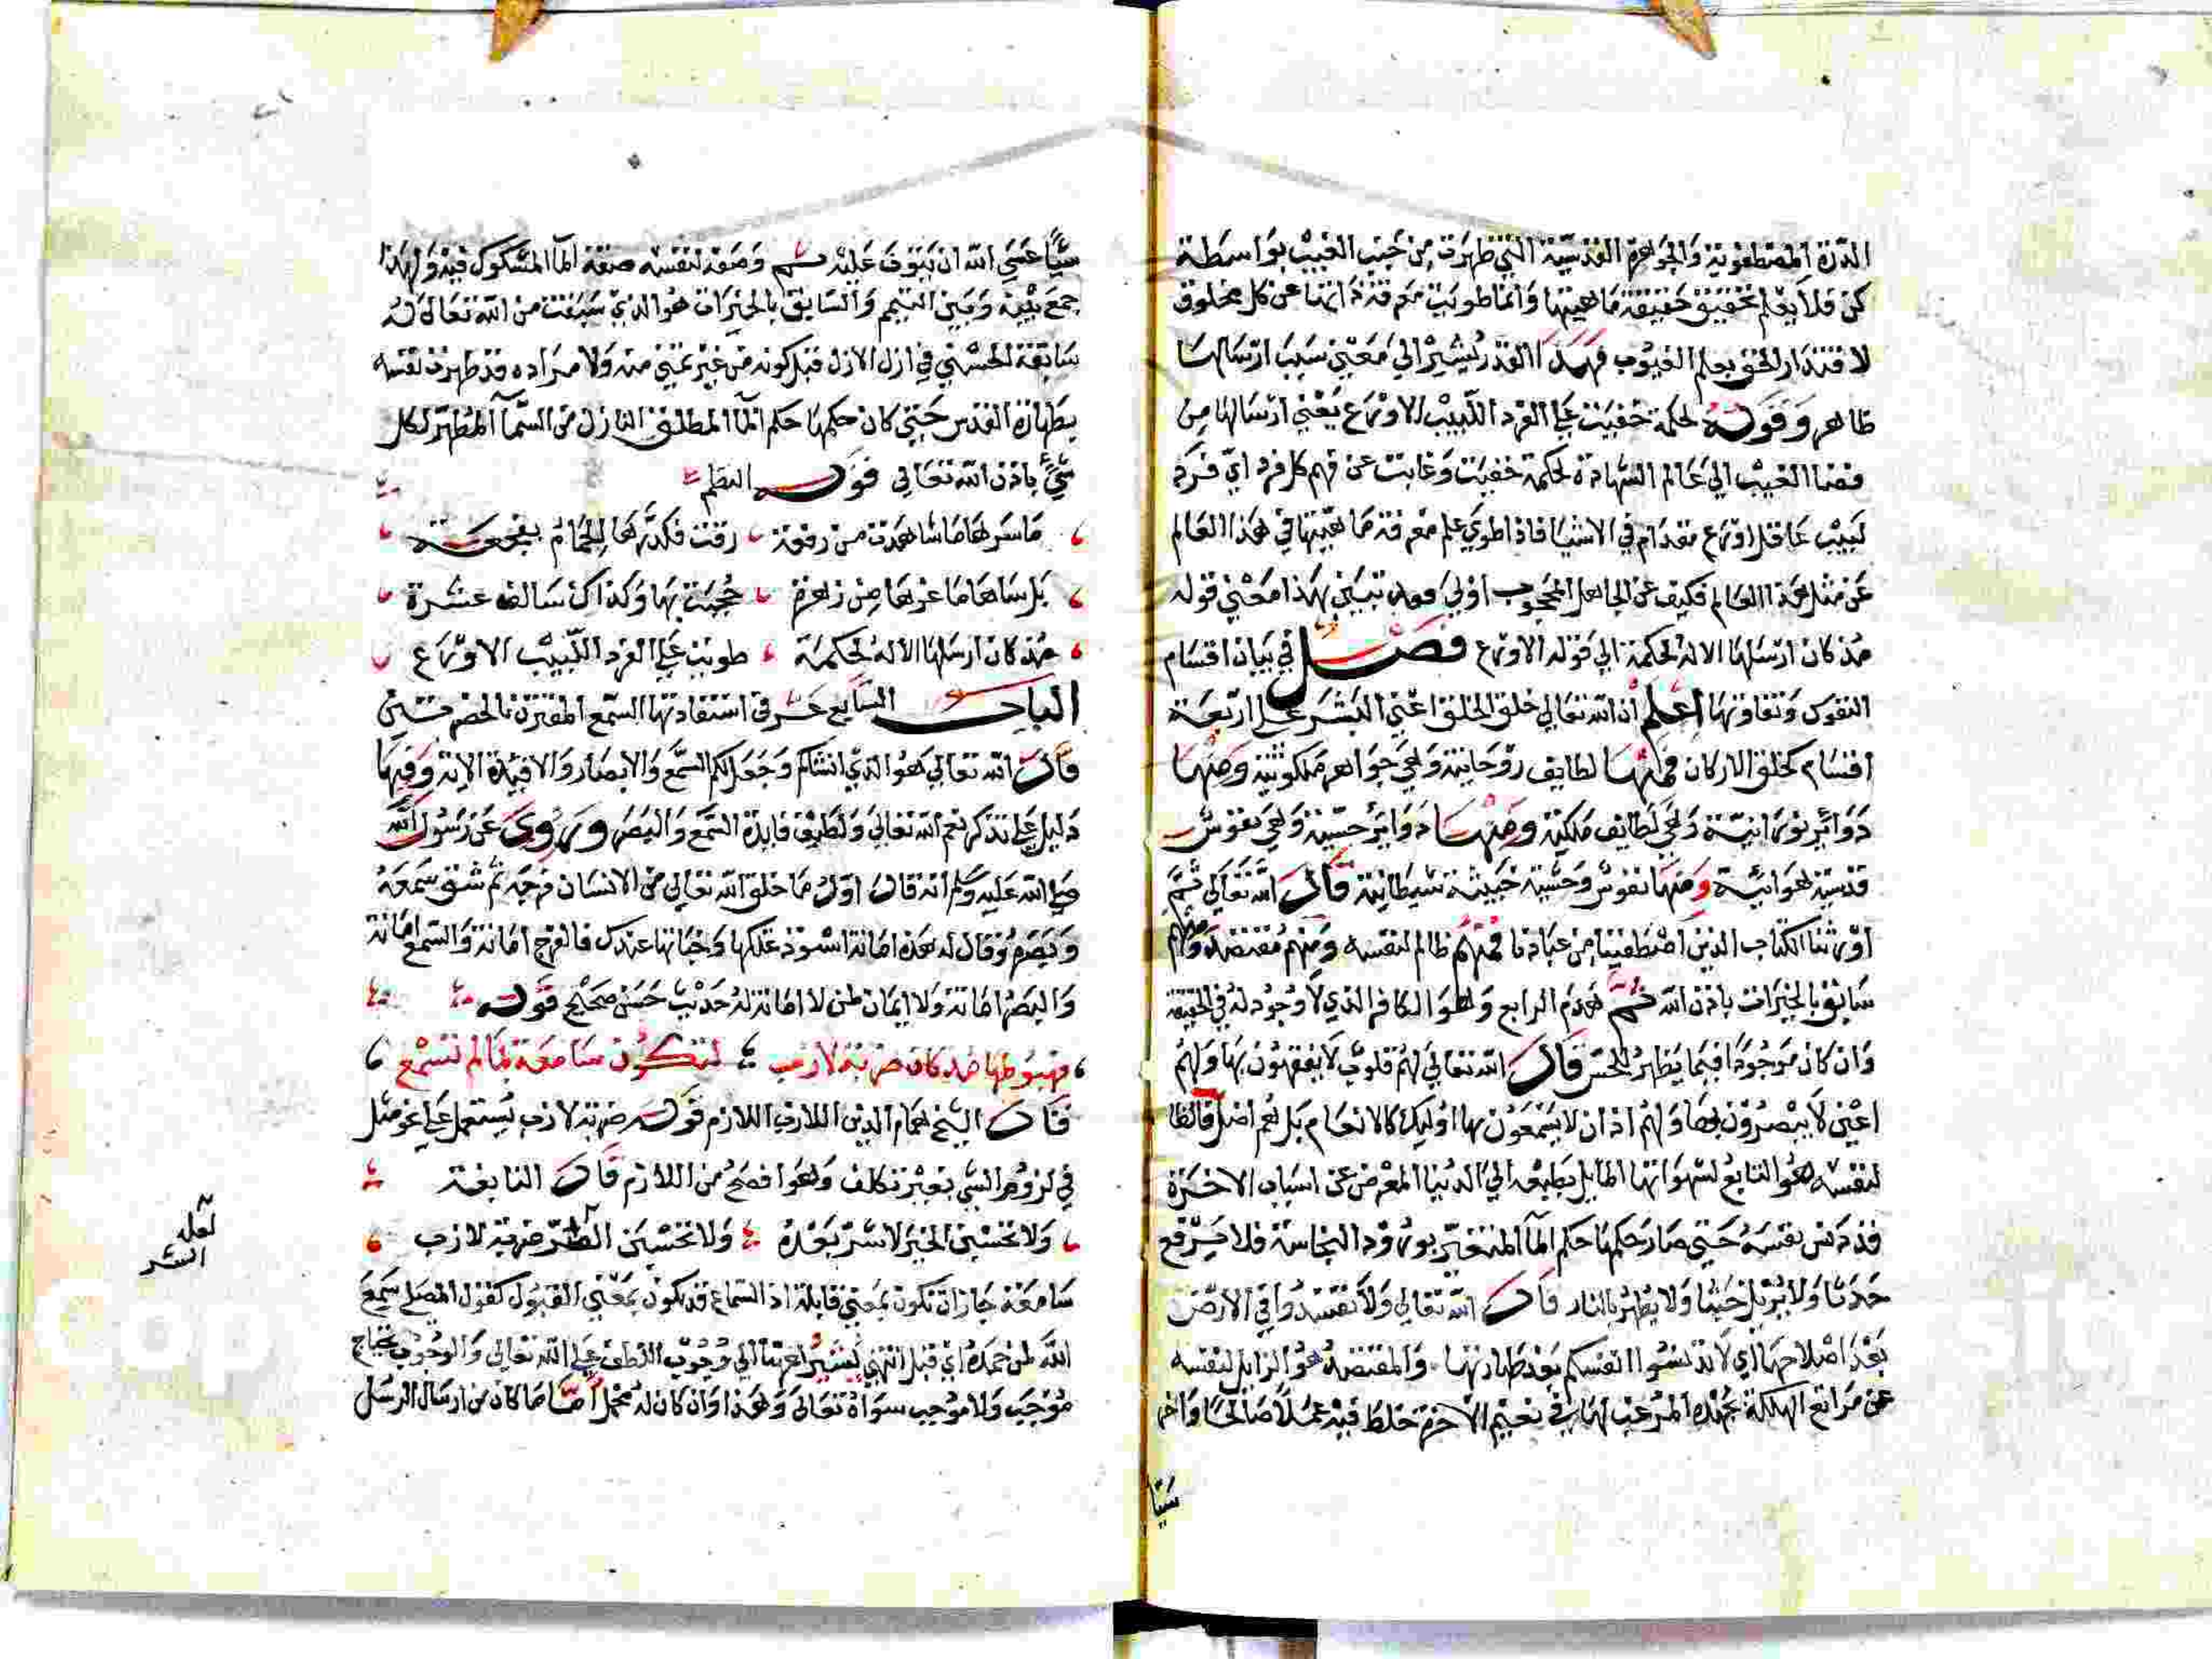 الدرة المصطفوية والجواهرة القدسية التي ظهرت من جيب الغيب بواسطة
كن فلا يعلم تحقيق حقيقة ماهيتها وانما طويت معرفة ذاتها عن كل مخلوق
لا قتدار الحق بعلم الغيوب فهذا القدر يشير الي معني سبب ارسالها
ظاهر وقوله لحكمة خفيت علي الفرد اللبيب الاورع يعني ارسالها من
فضا الغيب الي عالم الشهادة لحكمة خفيت وغابت عن فهم كل فرد اي فرد
لبيب عاقل اورع مقدام في الاشيا فاذا طوي علم معرفة ماهيتها في هذا العالم
عن مثل هذا العالم فكيف عن الجاهل المحجوب اولي فقد تبين بهذا معني قوله
مذ كان ارسلها الاله لحكمة الي قوله الاورع فصل في بيان اقسام
النفوس وتفاوتها اعلم ان الله تعالي خلق الخلق اعني البشر علي اربعة
اقسام كخلق الاركان فمنها لطايف روحانية وهي جواهر ملكوتية ومنها
دواير نورانية وهي لطايف ملكية ومنها دواير حسية وهي نفوس
قدسية هوائية ومنها نفوس وحسية خبيثة شيطانية قال الله تعالي ثم
اورثنا الكتاب الذين اصطفينا من عبادنا فمنهم ظالم لنفسه ومنهم مقتصد ومنهم
سابق بالخيرات باذن الله ثم هدم الرابع وهو الكافر الذي لا وجود له في الحقيقة
وان كان موجودا فيما يظهر للحس قال الله تعالي لهم قلوب لا يفقهون بها ولهم
اعين لا يبصرون بها ولهم اذان لا يسمعون بها اوليك كالانعام بل هم اضل فالظا
لنفسه هو التابع لشهواتها المايل بطبعه الي الدنيا المعرض عن اسباب الاخرة
قد دنس نفسه حتي صار حكمها حكم المآ المتغير بورود النجاسة فلا يرفع
حدثا ولا يزيل خبثا ولا يطهر بالنار قال الله تعالي ولا تفسدوا في الارض
بعد اصلاحها اي لا تدنسوا انفسكم بعد طهارتها والمقتصد هو الزايل لنفسه
عن مراتع الهلكة بجهده المرغب لها في نعيم الاخرة خلط فيه عملا صالحا واخر
سيا
سيا عسي الله ان يتوب عليه ثم وصفة لنفسه صفة المآ المشكوك فيه ولهذا
جمع بينه وبين التيمم والسابق بالخيرات هو الذي سبقت من الله تعالي له
سابقة الحسني في ازل الازل قبل كونه من غير تمني منه ولا مراده قد طهرت نفسه
بطهارة القدس حتي كان حكمها حكم المآ المطلق النازل من السمآ المطهر لكل
شي باذن الله تعالي قول الناظم
ما سرها ما شاهدت من رفعة رقت فكدرها الحمام بفجعة
بل سآها ما غرها من زهرة حجبت بها وكذاك سالف عشرة
مذ كان ارسلها الاله لحكمة طويت علي الفرد اللبيب الاورع
الباب السابع عشر في استفادتها السمع المقترن بالخصرتين
قال الله تعالي هو الذي انشاكم وجعل لكم السمع والابصار والافيدة الاية وفيها
دليل علي تذكر نعم الله تعالي ولطيف فايدة السمع والبصر وروي عن رسول الله
صلي الله عليه وسلم انه قال اول ما خلق الله تعالي من الانسان فرجه ثم شق سمعه
وبصره وقال له هذه امانة استودعتكها وخباتها عندك فالفرج امانة والسمع امانة
والبصر امانة ولا ايمان لمن لا امانة له حديث حسن صحيح قوله
فهبوطها مذ كان ضربة لازب لتكون سامعة لما لم تسمع
قال الشيخ همام الدين اللازب اللازم قوله ضربة لازب يستعمل علي نحو مثل
في لزوم الشي بغير تكلف وهو افصح من اللازم قال النابغة
ولا تحسبن الخير لا شر بعده ولا تحسبن الطر ضربة لازب
لعله
الشر
سامعة جاز ان تكون بمعني قابلة اذ السماع قد يكون بمعني القبول كقول المصلي سمع
الله لمن حمده اي قبل انتهي يشير لعربتنا الي وجوب اللطف علي الله تعالي والوجوب يحتاج
موجب ولا موجب سواه تعالي وهذا وان كان له محمل اما ما كان من ارسال الرسل